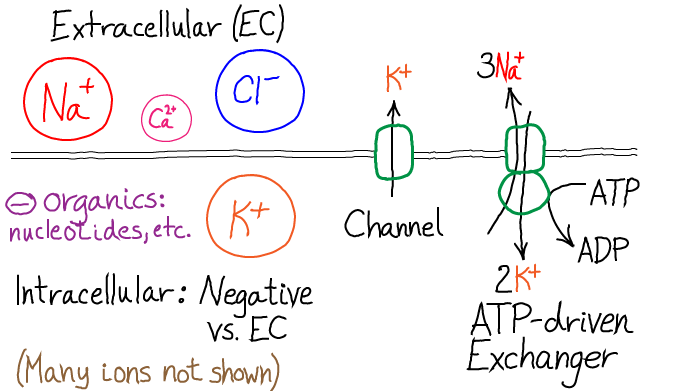 Extracellular (EC)
Na+
Ca2+
Cl−
K+
3Na+
− Organics:
nucleotides, etc.
K+
Channel
ATP
ADP
2K+
Intracellular: Negative
vs. EC
ATP-driven
Exchanger
(Many ions not shown)